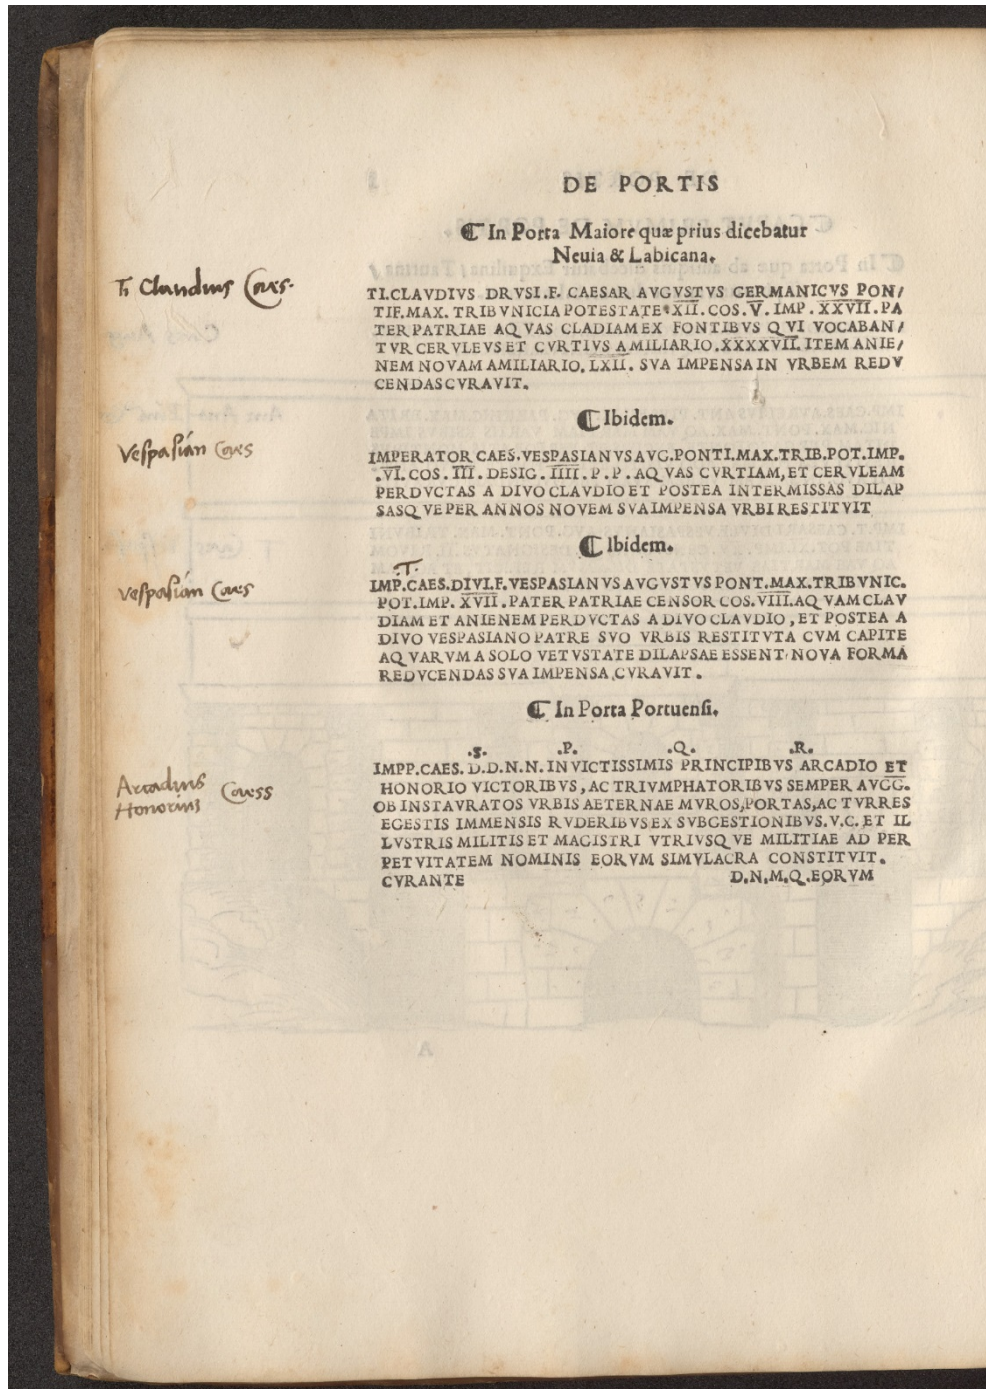 DE PORTIS
⁋ In Porta Maiore quæ prius dicebatur
Neuia & Labicana.
Ti Claudius Caes.
TI.CLAVDIVS DRVSI.F. CAESAR AVGVSTVS GERMANICVS PON/
TIF.MAX. TRIBVNICIA POTESTATE XII. COS. V. IMP. XXVII. PA
TER PATRIAE AQVAS CLADIAM EX FONTIBVS QVI VOCABAN/
TVR CERVLEVS ET CVRTIVS A MILIARIO.XXXXVII. ITEM ANIE/
NEM NOVAM A MILIARIO. LXII. SVA IMPENSA IN VRBEM REDV
CENDAS CVRAVIT.
⁋ Ibidem.
Vespasian Caes
IMPERATOR CAES.VESPASIANVS AVG.PONTI.MAX.TRIB.POT.IMP.
.VI. COS. III. DESIG. IIII. P. P. AQVAS CVRTIAM, ET CERVLEAM
PERDVCTAS A DIVO CLAVDIO ET POSTEA INTERMISSAS DILAP
SASQVE PER ANNOS NOVEM SVA IMPENSA VRBI RESTITVIT
⁋ Ibidem.
T.
Vespasian Caes
IMP.CAES.DIVI.F.VESPASIANVS AVGVSTVS PONT.MAX.TRIBVNIC.
POT.IMP. XVII. PATER PATRIAE CENSOR COS. VIII. AQVAM CLAV
DIAM ET ANIENEM PERDVCTAS A DIVO CLAVDIO, ET POSTEA A
DIVO VESPASIANO PATRE SVO VRBIS RESTITVTA CVM CAPITE
AQVARVM A SOLO VETVSTATE DILAPSAE ESSENT, NOVA FORMA
REDVCENDAS SVA IMPENSA, CVRAVIT.
⁋ In Porta Portuensi.
.S. .P. .Q. .R.
Arcadius
Honorius Caess
IMPP.CAES. D.D.N.N. INVICTISSIMIS PRINCIPIBVS ARCADIO ET
HONORIO VICTORIBVS, AC TRIVMPHATORIBVS SEMPER AVGG.
OB INSTAVRATOS VRBIS AETERNAE MVROS,PORTAS,AC TVRRES
EGESTIS IMMENSIS RVDERIBVS EX SVBGESTIONIBVS. V.C. ET IL
LVSTRIS MILITIS ET MAGISTRI VTRIVSQVE MILITIAE AD PER
PETVITATEM NOMINIS EORVM SIMVLACRA CONSTITVIT.
CVRANTE D.N.M.Q.EORVM